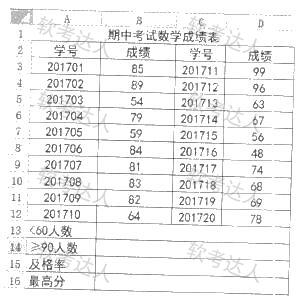 A B C D
1 期中考试数学成绩表
2 学号 成绩 学号 成绩
3 201701 85 201711 99
4 201702 89 201712 96
5 201703 54 201713 63
6 201704 79 201714 67
7 201705 59 201715 56
8 201706 84 201716 48
9 201707 81 201717 74
10 201708 83 201718 68
11 201709 82 201719 69
12 201710 64 201720 78
13 <60人数
14 ≥90人数
15 及格率
16 最高分
软考达人
软考达人
软考达人
软考达人
软考达人
软考达人